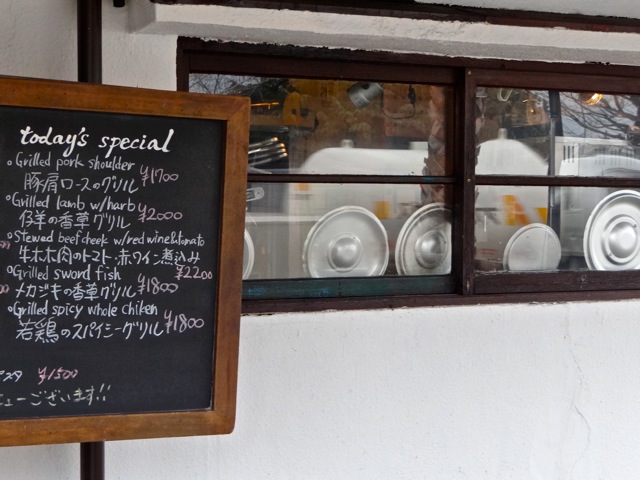 today's special
Grilled pork shoulder
豚肩ロースのグリル ¥1700
Grilled lamb w/harb
仔羊の香草グリル ¥2000
Stewed beef cheek w/red wine&tomato
牛ホホ肉のトマト・赤ワイン煮込み
Grilled sword fish ¥2200
メカジキの香草グリル ¥1800
Grilled spicy whole chiken
若鶏のスパイシーグリル ¥1800
¥1500
ューございます!!